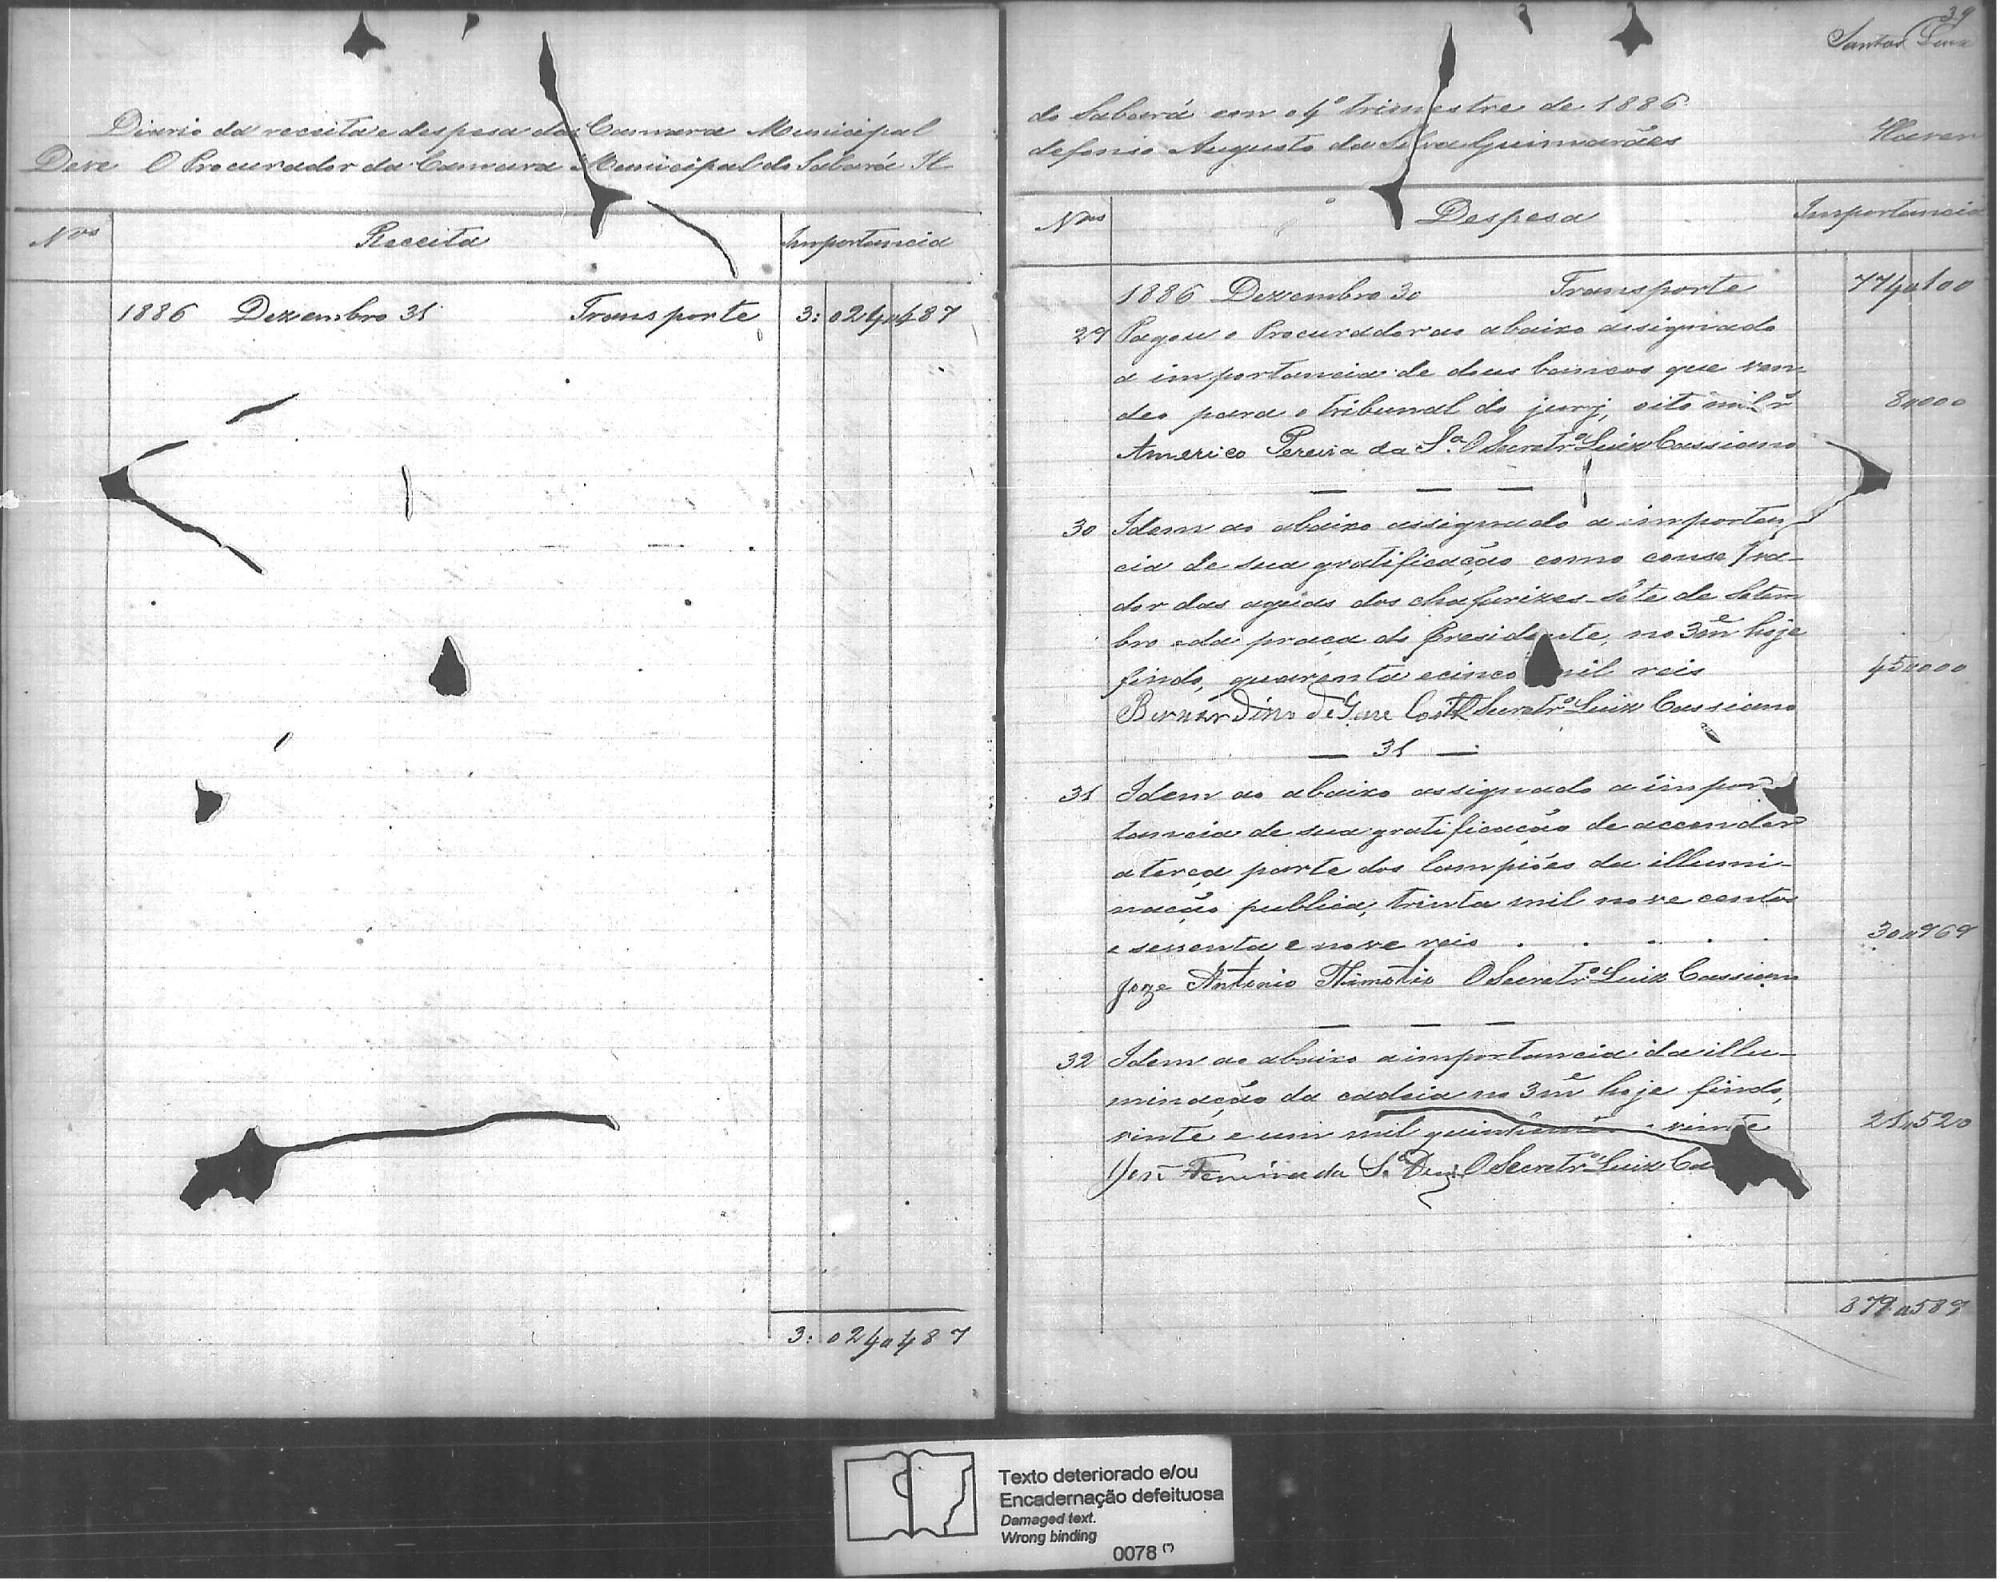 Diario da receita e despesa da Camara Municipal
Deve O Procurador da Camara Municipal do Sabará Il
Nos Receita Importancia
1886 Dezembro 31 Transporte 3:024$487
3:024$487
39
Santos
do Sabará em o 4º trimestre de 1886
defonso Augusto da Silva Guimarães Haver
Nos Despesa Importancia
1886 Dezembro 30 Transporte 774$100
29 Pagou o Procurador ao abaixo assignado
a importancia de dous bancos que ven
deo para o tribunal do jury, oito mil r 8$000
Americo Pereira da Sª O Secretrº Luiz Cassiano
— — —
30 Idem ao abaixo assignado a importan
cia de sua gratificação como conserva-
dor das aguas dos chafarizes Sete de Setem
bro e da praça do Presidente, no 3me hoje
findo, quarenta e cinco mil reis 45$000
Bernardino de Costa O Secretrº Luiz Cassiano
— 31 —
31 Idem ao abaixo assignado a impor
tancia de sua gratificação de accender
a terça parte dos lampiões da illumi-
nação publica, trinta mil nove centos
e secenta e nove reis . . . . . 30$969
Joze Antonio Thimotio O Secretrº Luiz Cassiano
— — —
32 Idem ao abaixo a importancia da illu-
minação da cadeia no 3me hoje findo,
vinte e um mil quinhentos e vinte 21$520
José Ferreira da Sª O Secretrº Luiz Ca
879$589
Texto deteriorado e/ou
Encadernação defeituosa
Damaged text.
Wrong binding
0078 (*)